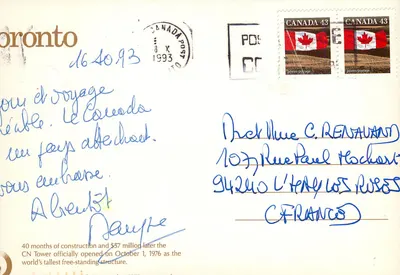 oronto
16.10.93
CANADA
X
1993
POS
CO
CANADA 43
CANADA 43
et voyage
Le Canada
un pays attachant.
vous embrasse.
A bientôt
M et Mme C. RENAVAND
107, Rue Paul Hochart
94240 L'HAY LES ROSES
(FRANCE)
40 months of construction and $37 million later the
CN Tower officially opened on October 1, 1976 as the
world's tallest free-standing structure.